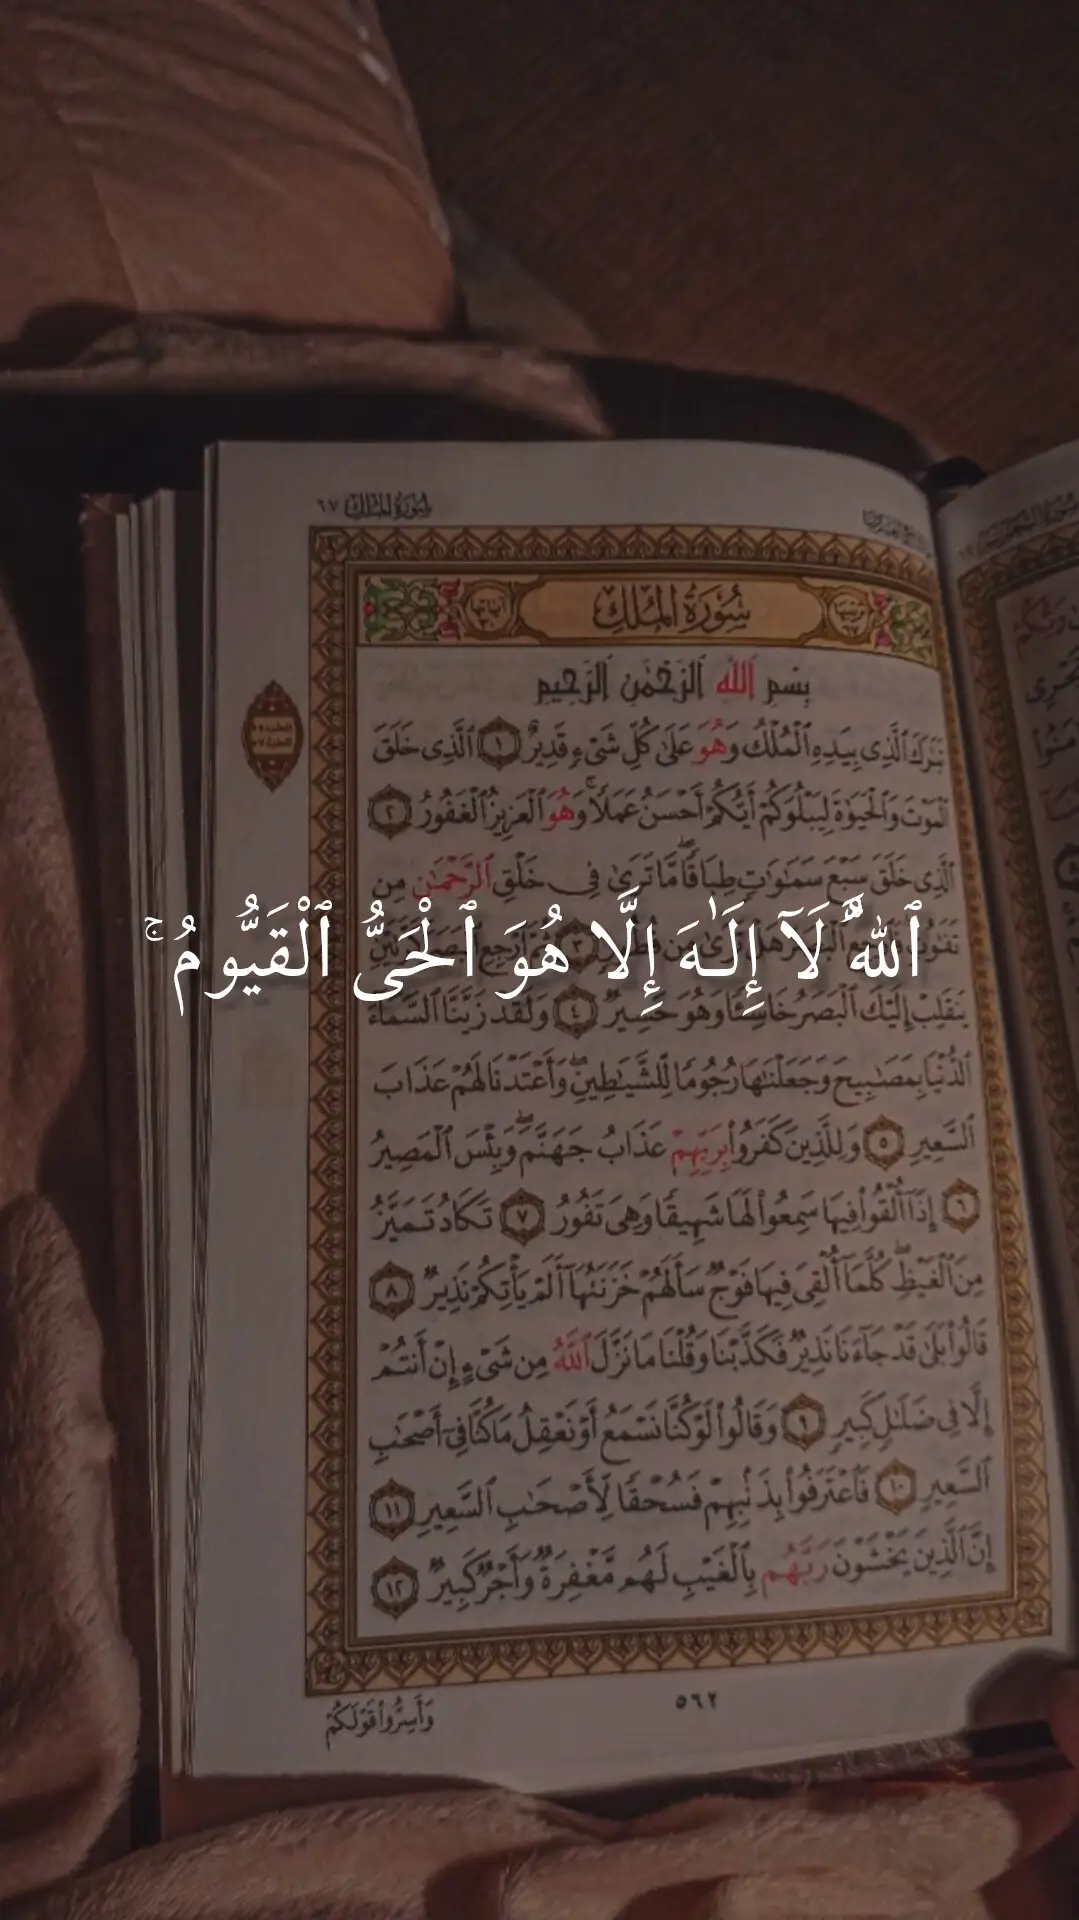 سُورَةُ المُلْكِ ٦٧
سُورَةُ المُلْكِ
بِسْمِ ٱللَّهِ ٱلرَّحْمَٰنِ ٱلرَّحِيمِ
تَبَٰرَكَ ٱلَّذِى بِيَدِهِ ٱلْمُلْكُ وَهُوَ عَلَىٰ كُلِّ شَىْءٍ قَدِيرٌ ١ ٱلَّذِى خَلَقَ
ٱلْمَوْتَ وَٱلْحَيَوٰةَ لِيَبْلُوَكُمْ أَيُّكُمْ أَحْسَنُ عَمَلًا ۚ وَهُوَ ٱلْعَزِيزُ ٱلْغَفُورُ ٢
ٱلَّذِى خَلَقَ سَبْعَ سَمَٰوَٰتٍ طِبَاقًا ۖ مَّا تَرَىٰ فِى خَلْقِ ٱلرَّحْمَٰنِ مِن
ٱللَّهُ لَآ إِلَـٰهَ إِلَّا هُوَ ٱلْحَىُّ ٱلْقَيُّومُ ۚ
يَنقَلِبْ إِلَيْكَ ٱلْبَصَرُ خَاسِئًا وَهُوَ حَسِيرٌ ٤ وَلَقَدْ زَيَّنَّا ٱلسَّمَآءَ
ٱلدُّنْيَا بِمَصَٰبِيحَ وَجَعَلْنَٰهَا رُجُومًا لِّلشَّيَٰطِينِ ۖ وَأَعْتَدْنَا لَهُمْ عَذَابَ
ٱلسَّعِيرِ ٥ وَلِلَّذِينَ كَفَرُوا۟ بِرَبِّهِمْ عَذَابُ جَهَنَّمَ ۖ وَبِئْسَ ٱلْمَصِيرُ
٦ إِذَآ أُلْقُوا۟ فِيهَا سَمِعُوا۟ لَهَا شَهِيقًا وَهِىَ تَفُورُ ٧ تَكَادُ تَمَيَّزُ
مِنَ ٱلْغَيْظِ ۖ كُلَّمَآ أُلْقِىَ فِيهَا فَوْجٌ سَأَلَهُمْ خَزَنَتُهَآ أَلَمْ يَأْتِكُمْ نَذِيرٌ ٨
قَالُوا۟ بَلَىٰ قَدْ جَآءَنَا نَذِيرٌ فَكَذَّبْنَا وَقُلْنَا مَا نَزَّلَ ٱللَّهُ مِن شَىْءٍ إِنْ أَنتُمْ
إِلَّا فِى ضَلَٰلٍ كَبِيرٍ ٩ وَقَالُوا۟ لَوْ كُنَّا نَسْمَعُ أَوْ نَعْقِلُ مَا كُنَّا فِىٓ أَصْحَٰبِ
ٱلسَّعِيرِ ١٠ فَٱعْتَرَفُوا۟ بِذَنۢبِهِمْ فَسُحْقًا لِّأَصْحَٰبِ ٱلسَّعِيرِ ١١
إِنَّ ٱلَّذِينَ يَخْشَوْنَ رَبَّهُم بِٱلْغَيْبِ لَهُم مَّغْفِرَةٌ وَأَجْرٌ كَبِيرٌ ١٢
وَأَسِرُّوا۟ قَوْلَكُمْ
٥٦٢